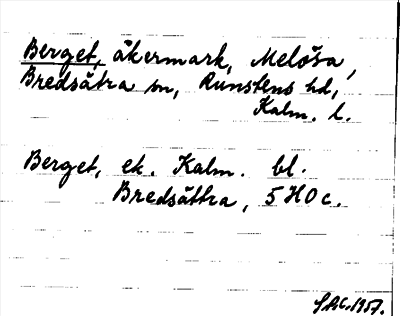 Berget, åkermark, Melösa,
Bredsätra sn, Runstens hd,
Kalm. l.
Berget, ek. Kalm. bl.
Bredsättra, 5 H 0 c.
1957.